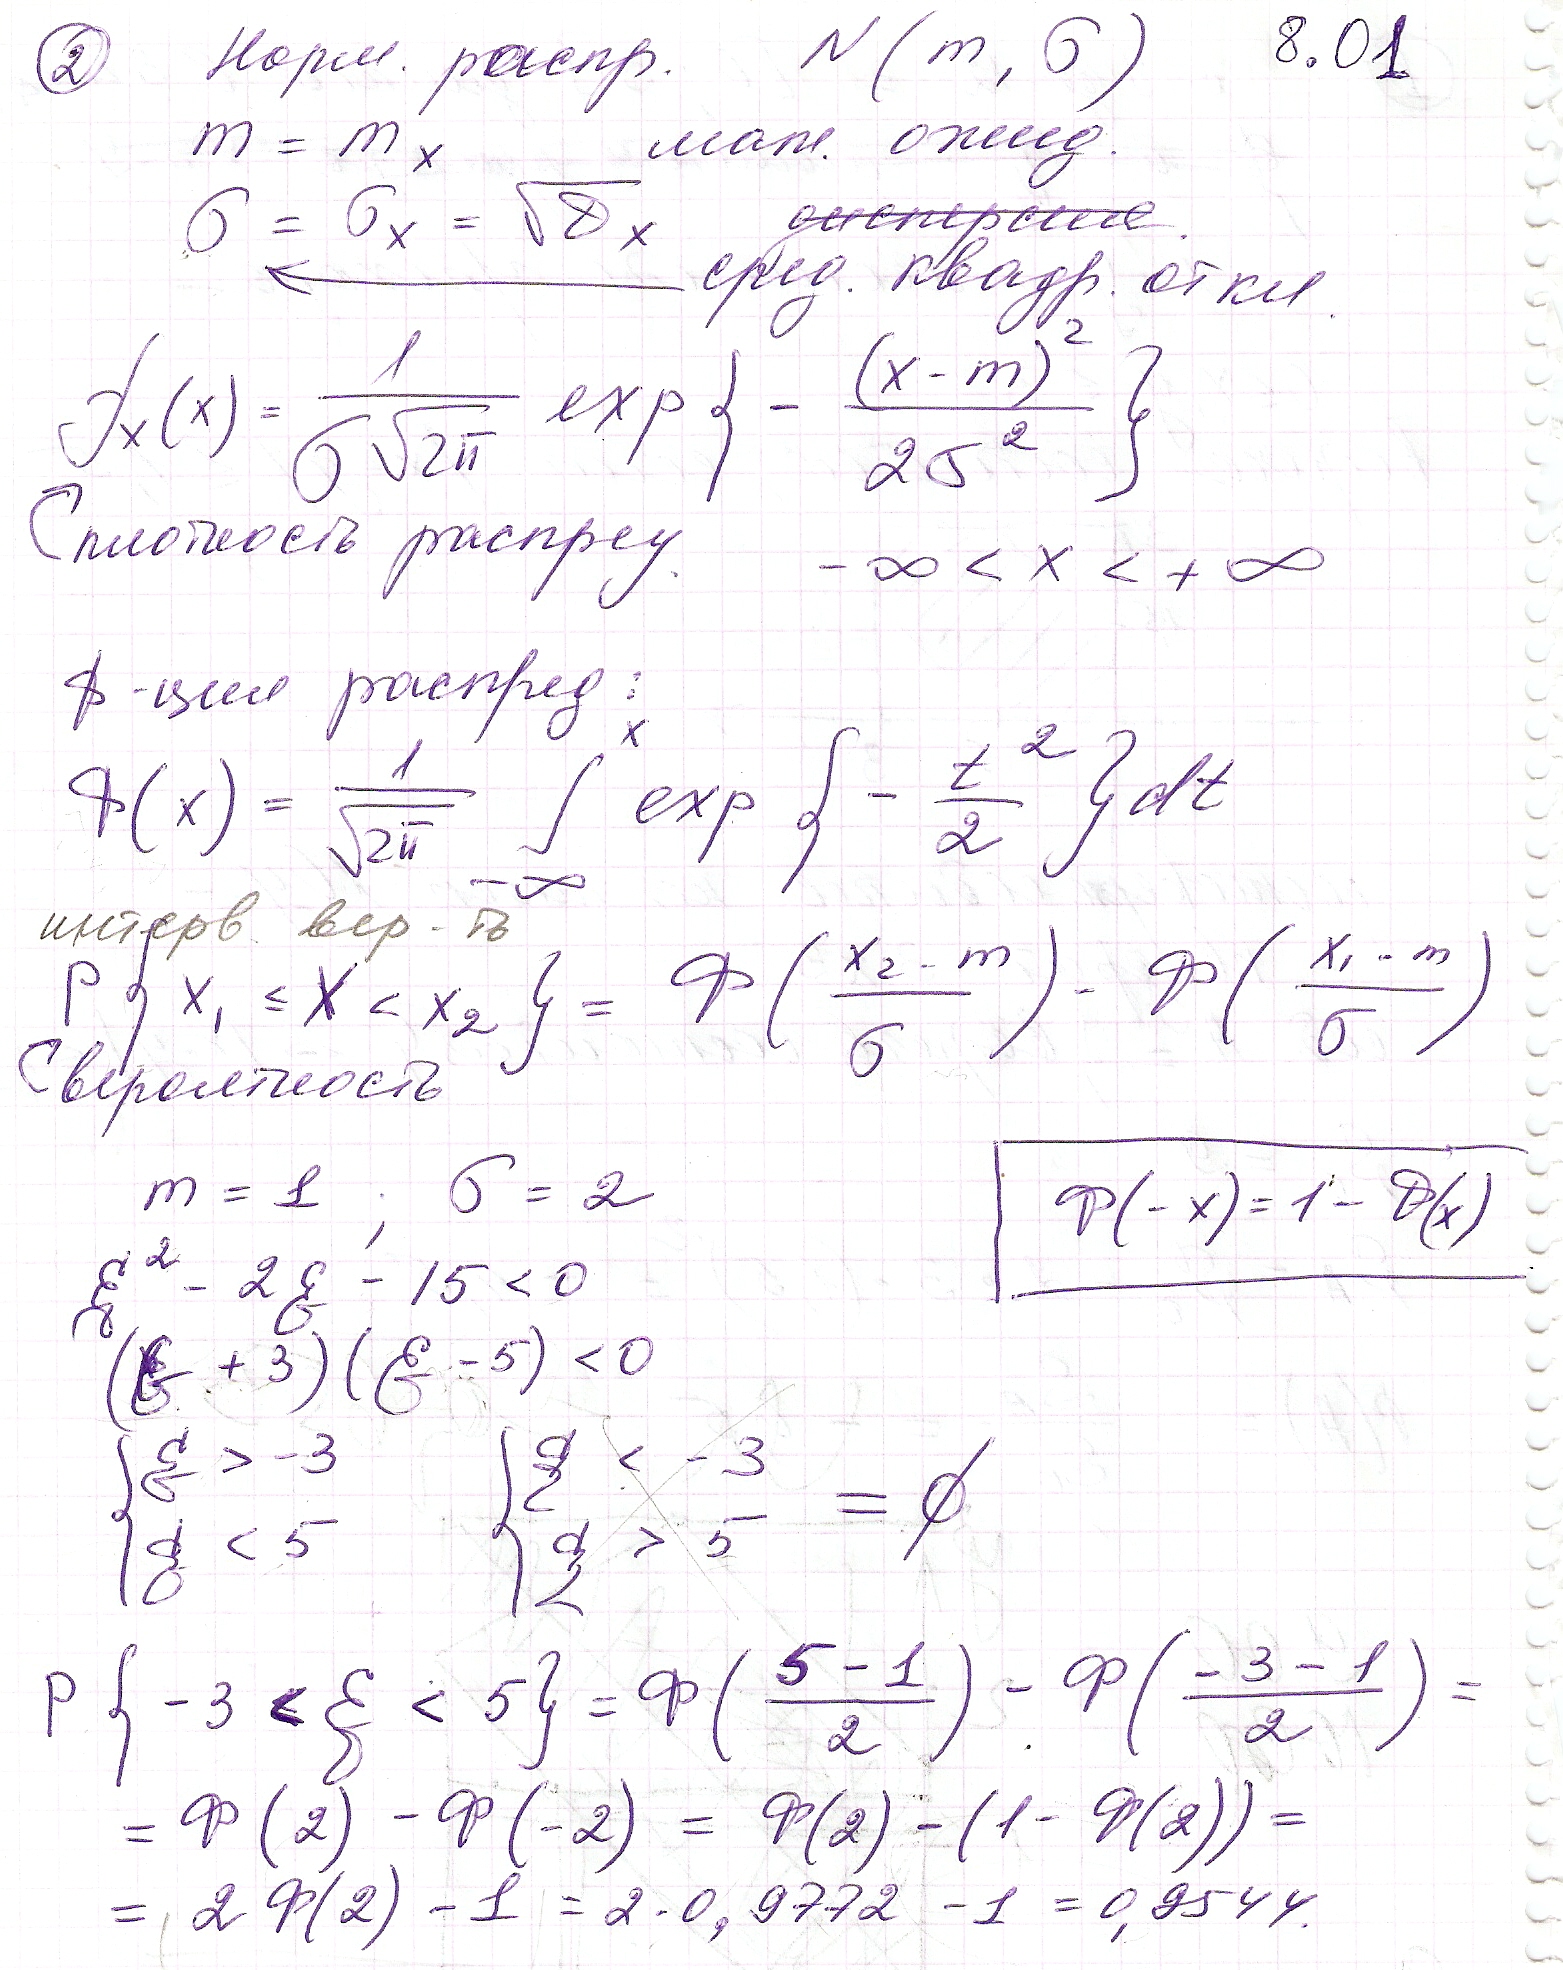 ② Норм. распр. N(m, σ) 8.01
m = mₓ мат. ожид.
σ = σₓ = √Dₓ дисперсия.
сред. квадр. откл.
fₓ(x) = 1/(σ√2π) exp{ - (x - m)²/(2σ²) }
плотность распред. -∞ < x < +∞
ф-ция распред:
Φ(x) = 1/√2π ∫_{-∞}^{x} exp{ - t²/2 } dt
интерв. вер-ть
P{ x₁ ≤ X < x₂ } = Φ( (x₂ - m)/σ ) - Φ( (x₁ - m)/σ )
вероятность
m = 1 ; σ = 2
Φ(-x) = 1 - Φ(x)
ξ² - 2ξ - 15 < 0
(ξ + 3)(ξ - 5) < 0
{ ξ > -3 { ξ < -3
{ ξ < 5 { ξ > 5 = ∅
P{ -3 < ξ < 5 } = Φ( (5 - 1)/2 ) - Φ( (-3 - 1)/2 ) =
= Φ(2) - Φ(-2) = Φ(2) - (1 - Φ(2)) =
= 2Φ(2) - 1 = 2·0,9772 - 1 = 0,9544.